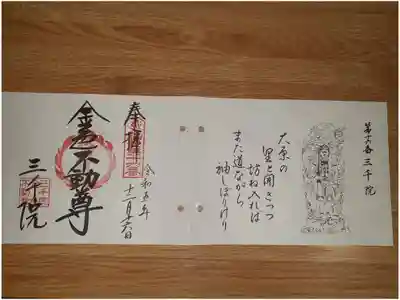 第十六番 三千院
大原の
里と聞きつつ
訪ね入れば
また道ながら
袖しぼりけり
奉拝
令和五年
十二月十六日
金色不動尊
三千院